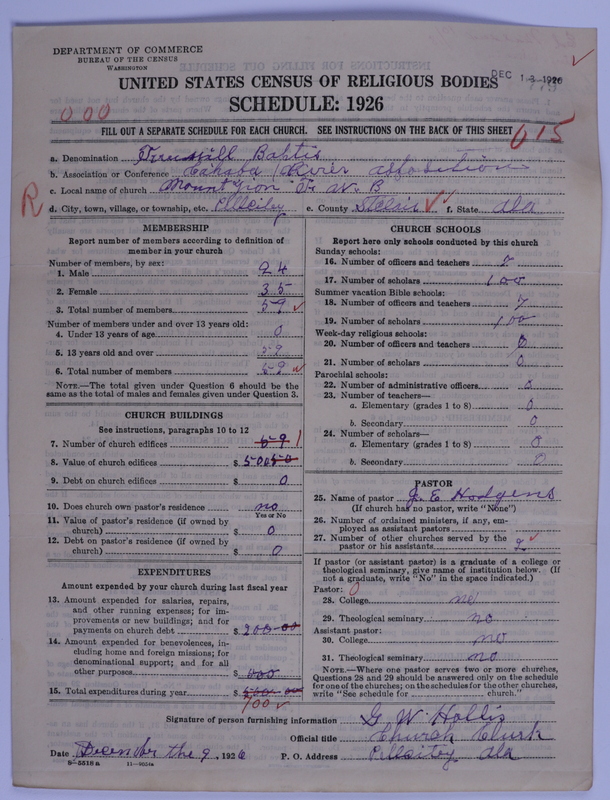 DEPARTMENT OF COMMERCE
BUREAU OF THE CENSUS
WASHINGTON
UNITED STATES CENSUS OF RELIGIOUS BODIES
DEC 13 1926
SCHEDULE: 1926
000
FILL OUT A SEPARATE SCHEDULE FOR EACH CHURCH. SEE INSTRUCTIONS ON THE BACK OF THIS SHEET
615
a. Denomination Baptis
b. Association or Conference Cahaba River assosation
c. Local name of church Mount Zion F W B
R
d. City, town, village, or township, etc. Pellcity e. County St Clair f. State Ala
MEMBERSHIP
Report number of members according to definition of member in your church
Number of members by sex:
1. Male 24
2. Female 35
3. Total number of members 59
Number of members under and over 13 years old:
4. Under 13 years of age 0
5. 13 years old and over 59
6. Total number of members 59
NOTE.—The total given under Question 6 should be the same as the total of males and females given under Question 3.
CHURCH BUILDINGS
See instructions, paragraphs 10 to 12
7. Number of church edifices 59 1
8. Value of church edifices $ 500
9. Debt on church edifices $ 0
10. Does church own pastor's residence no
Yes or No
11. Value of pastor's residence (if owned by church) $ 0
12. Debt on pastor's residence (if owned by church) $ 0
EXPENDITURES
Amount expended by your church during last fiscal year
13. Amount expended for salaries, repairs, and other running expenses; for improvements or new buildings; and for payments on church debt $ 200 00
14. Amount expended for benevolences, including home and foreign missions; for denominational support; and for all other purposes $ 000
15. Total expenditures during year $
CHURCH SCHOOLS
Report here only schools conducted by this church
Sunday schools:
16. Number of officers and teachers 7
17. Number of scholars 100
Summer vacation Bible schools:
18. Number of officers and teachers 7
19. Number of scholars 100
Week-day religious schools:
20. Number of officers and teachers 0
21. Number of scholars 0
Parochial schools:
22. Number of administrative officers 0
23. Number of teachers—
a. Elementary (grades 1 to 8) 0
b. Secondary 0
24. Number of scholars—
a. Elementary (grades 1 to 8) 0
b. Secondary 0
PASTOR
25. Name of pastor J. E Hodgens
(If church has no pastor, write "None")
26. Number of ordained ministers, if any, employed as assistant pastors
27. Number of other churches served by the pastor or his assistants 2
If pastor (or assistant pastor) is a graduate of a college or theological seminary, give name of institution below. (If not a graduate, write "No" in the space indicated.)
Pastor: 0
28. College no
29. Theological seminary no
Assistant pastor:
30. College no
31. Theological seminary no
NOTE.—Where one pastor serves two or more churches, Questions 28 and 29 should be answered only on the schedule for one of the churches; on the schedules for the other churches, write "See schedule for church."
Signature of person furnishing information G W Hollis
Official title Church Clurk
Date December the 9, 1926 P. O. Address Pellcity Ala
8—5518a 11—9054a